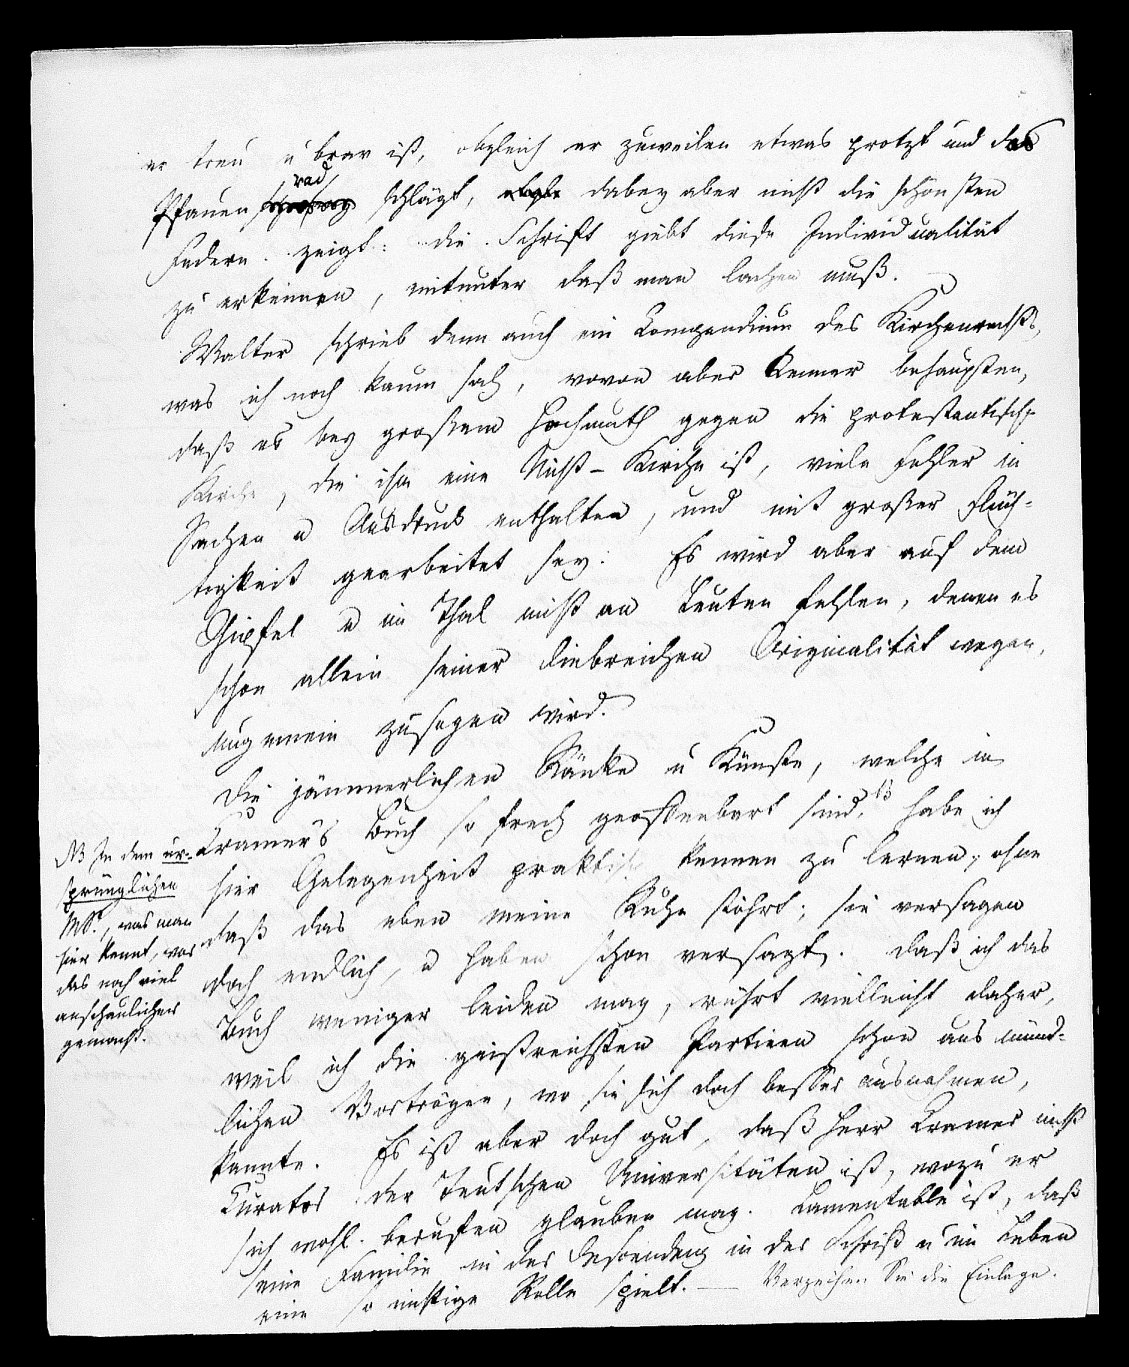 er treu u brav ist, obgleich er zuweilen etwas protzt und das
Pfauenrad schlägt, dabey aber nicht die schönsten
Federn zeigt: die Schrift giebt diese Individualität
zu erkennen, mitunter daß man lachen muß.
Walter schrieb denn auch ein Compendium des Kirchenrechts,
was ich noch kaum sah, wovon aber Kenner behaupten,
daß es bey großem Hochmuth gegen die protestantische
Kirche, die ihm eine Nicht-Kirche ist, viele Fehler in
Sachen u Ausdruck enthalten, und mit großer Flüch-
tigkeit gearbeitet sey. Es wird aber auf dem
Gipfel u im Thal nicht an Leuten fehlen, denen es
schon allein seiner diebreichen Originalität wegen,
ungemein zusagen wird.
Die jämmerlichen Ränke u Künste, welche in
Cramer's Buch so frech geoffenbart sind, NB habe ich
hier Gelegenheit praktisch kennen zu lernen, ohne
daß das eben meine Ruhe stöhrt; sie versagen
doch endlich, u haben schon versagt. Daß ich das
Buch weniger leiden mag, rührt vielleicht daher,
weil ich die geistreichsten Partieen schon aus münd-
lichen Vorträgen, wo sie sich doch besser ausnahmen,
kannte. Es ist aber doch gut, daß Herr Cramer nicht
Curator der Teutschen Universitäten ist, wozu er
sich wohl berufen glauben mag. Lamentable ist, daß
seine Familie in der Descendenz in der Schrift u im Leben
eine so nichtige Rolle spielt. — Verzeihen Sie die Einlage.
NB In dem ur-
sprünglichen
MS., was man
hier kennt, war
das noch viel
anschaulicher
gemacht.